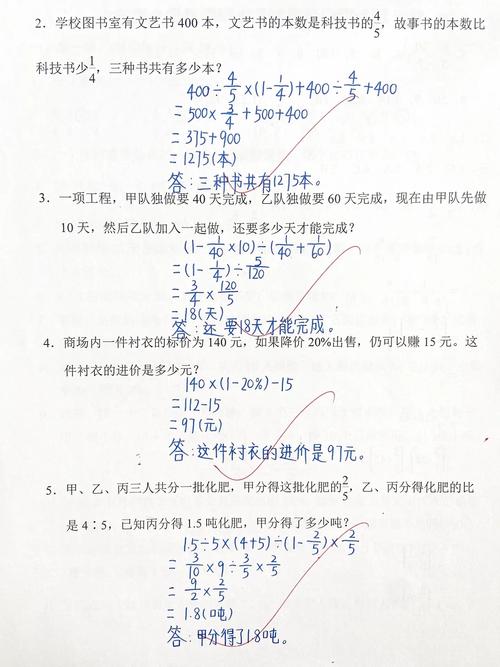 2. 学校图书室有文艺书 400 本，文艺书的本数是科技书的4/5，故事书的本数比
科技书少1/4，三种书共有多少本？
400÷4/5×(1-1/4)+400÷4/5+400
=500×3/4+500+400
=375+900
=1275(本)
答:三种书共有1275本。
3. 一项工程，甲队独做要 40 天完成，乙队独做要 60 天完成，现在由甲队先做
10 天，然后乙队加入一起做，还要多少天才能完成？
(1-1/40×10)÷(1/40+1/60)
=(1-1/4)÷5/120
=3/4×120/5
=18(天)
答:还要18天才能完成。
4. 商场内一件衬衣的标价为 140 元，如果降价 20%出售，仍可以赚 15 元。这
件衬衣的进价是多少元？
140×(1-20%)-15
=112-15
=97(元)
答:这件衬衣的进价是97元。
5. 甲、乙、丙三人共分一批化肥，甲分得这批化肥的2/5，乙、丙分得化肥的比
是 4∶5，已知丙分得 1.5 吨化肥，甲分得了多少吨？
1.5÷5×(4+5)÷(1-2/5)×2/5
=3/10×9÷3/5×2/5
=9/2×2/5
=1.8(吨)
答:甲分得了1.8吨。